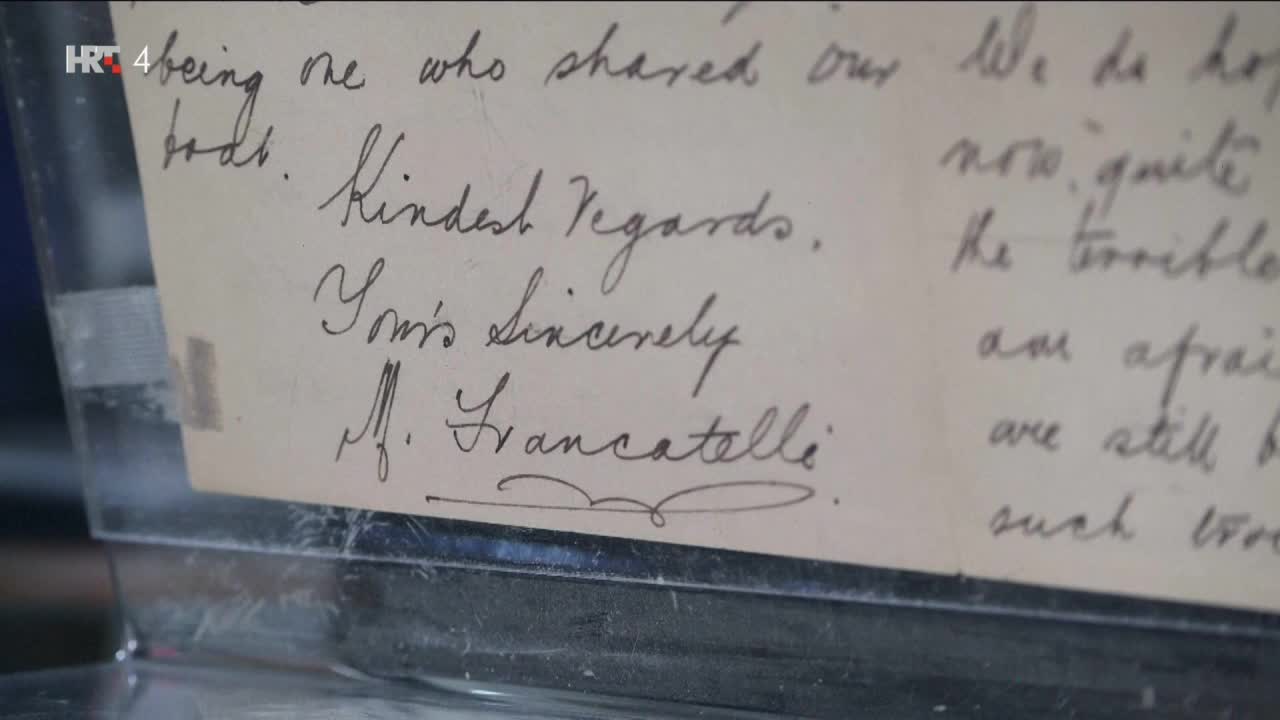 HRT 4
being one who shared our
boat.
Kindest Regards.
Yours Sincerely
M. Francatelli.
We do
now, quite
the terrible
are still
such